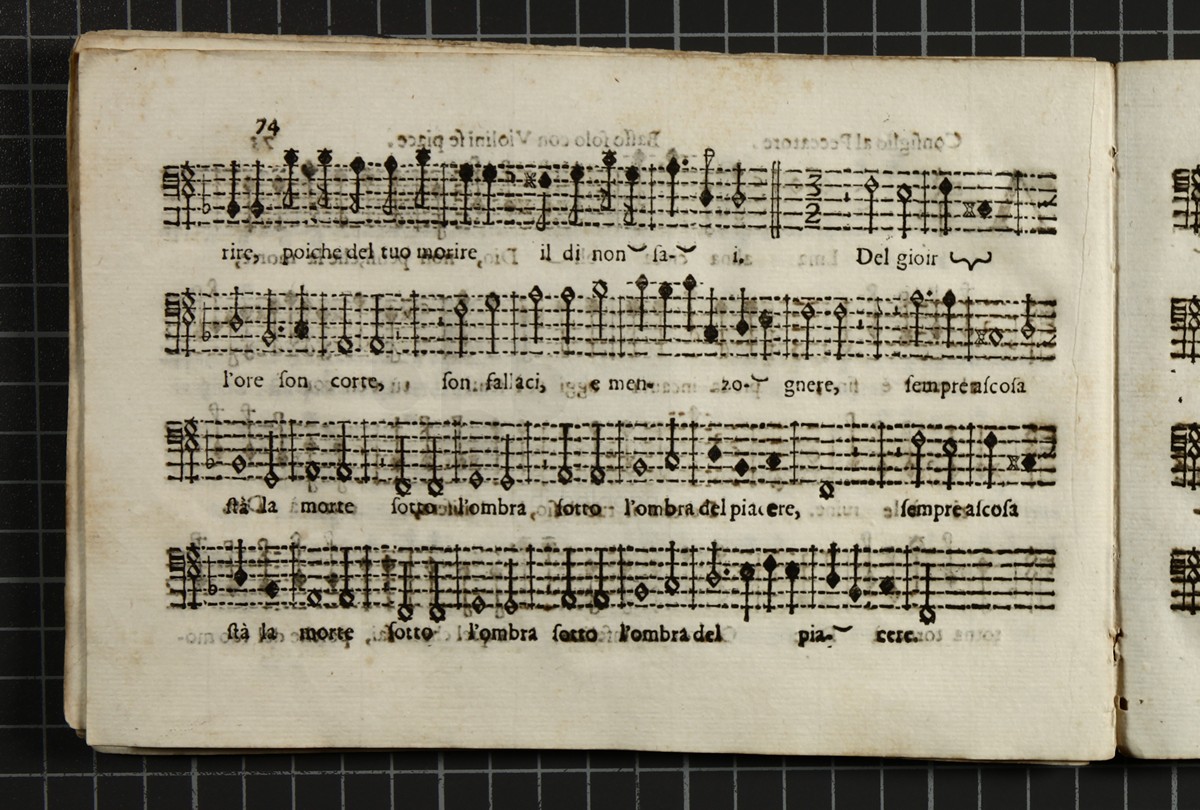 74
rire, poiche del tuo morire, il di non ſa- i.
3
2
Del gioir
l'ore ſon corte, ſon fallaci, e men- zo- gnere, ſempre aſcoſa
ſtà la morte ſotto l'ombra, ſotto l'ombra del piacere, ſempre aſcoſa
ſtà la morte ſotto l'ombra ſotto l'ombra del pia- cere.